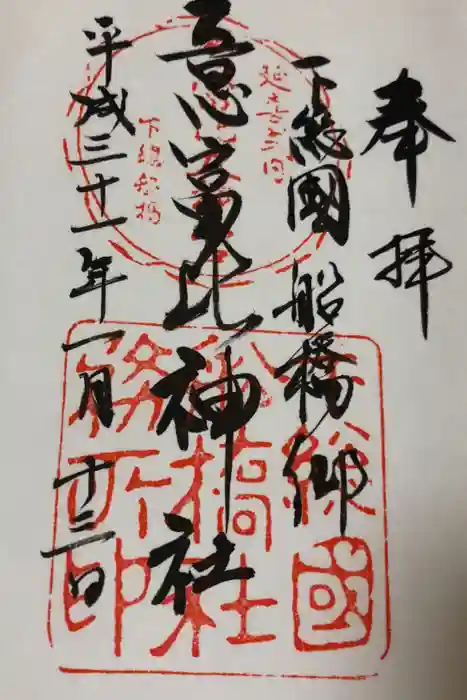 奉拝
下総國 船橋郷
意富比神社
平成三十一年一月十三日
延喜式内
下総船橋
総國
船橋社
務所印